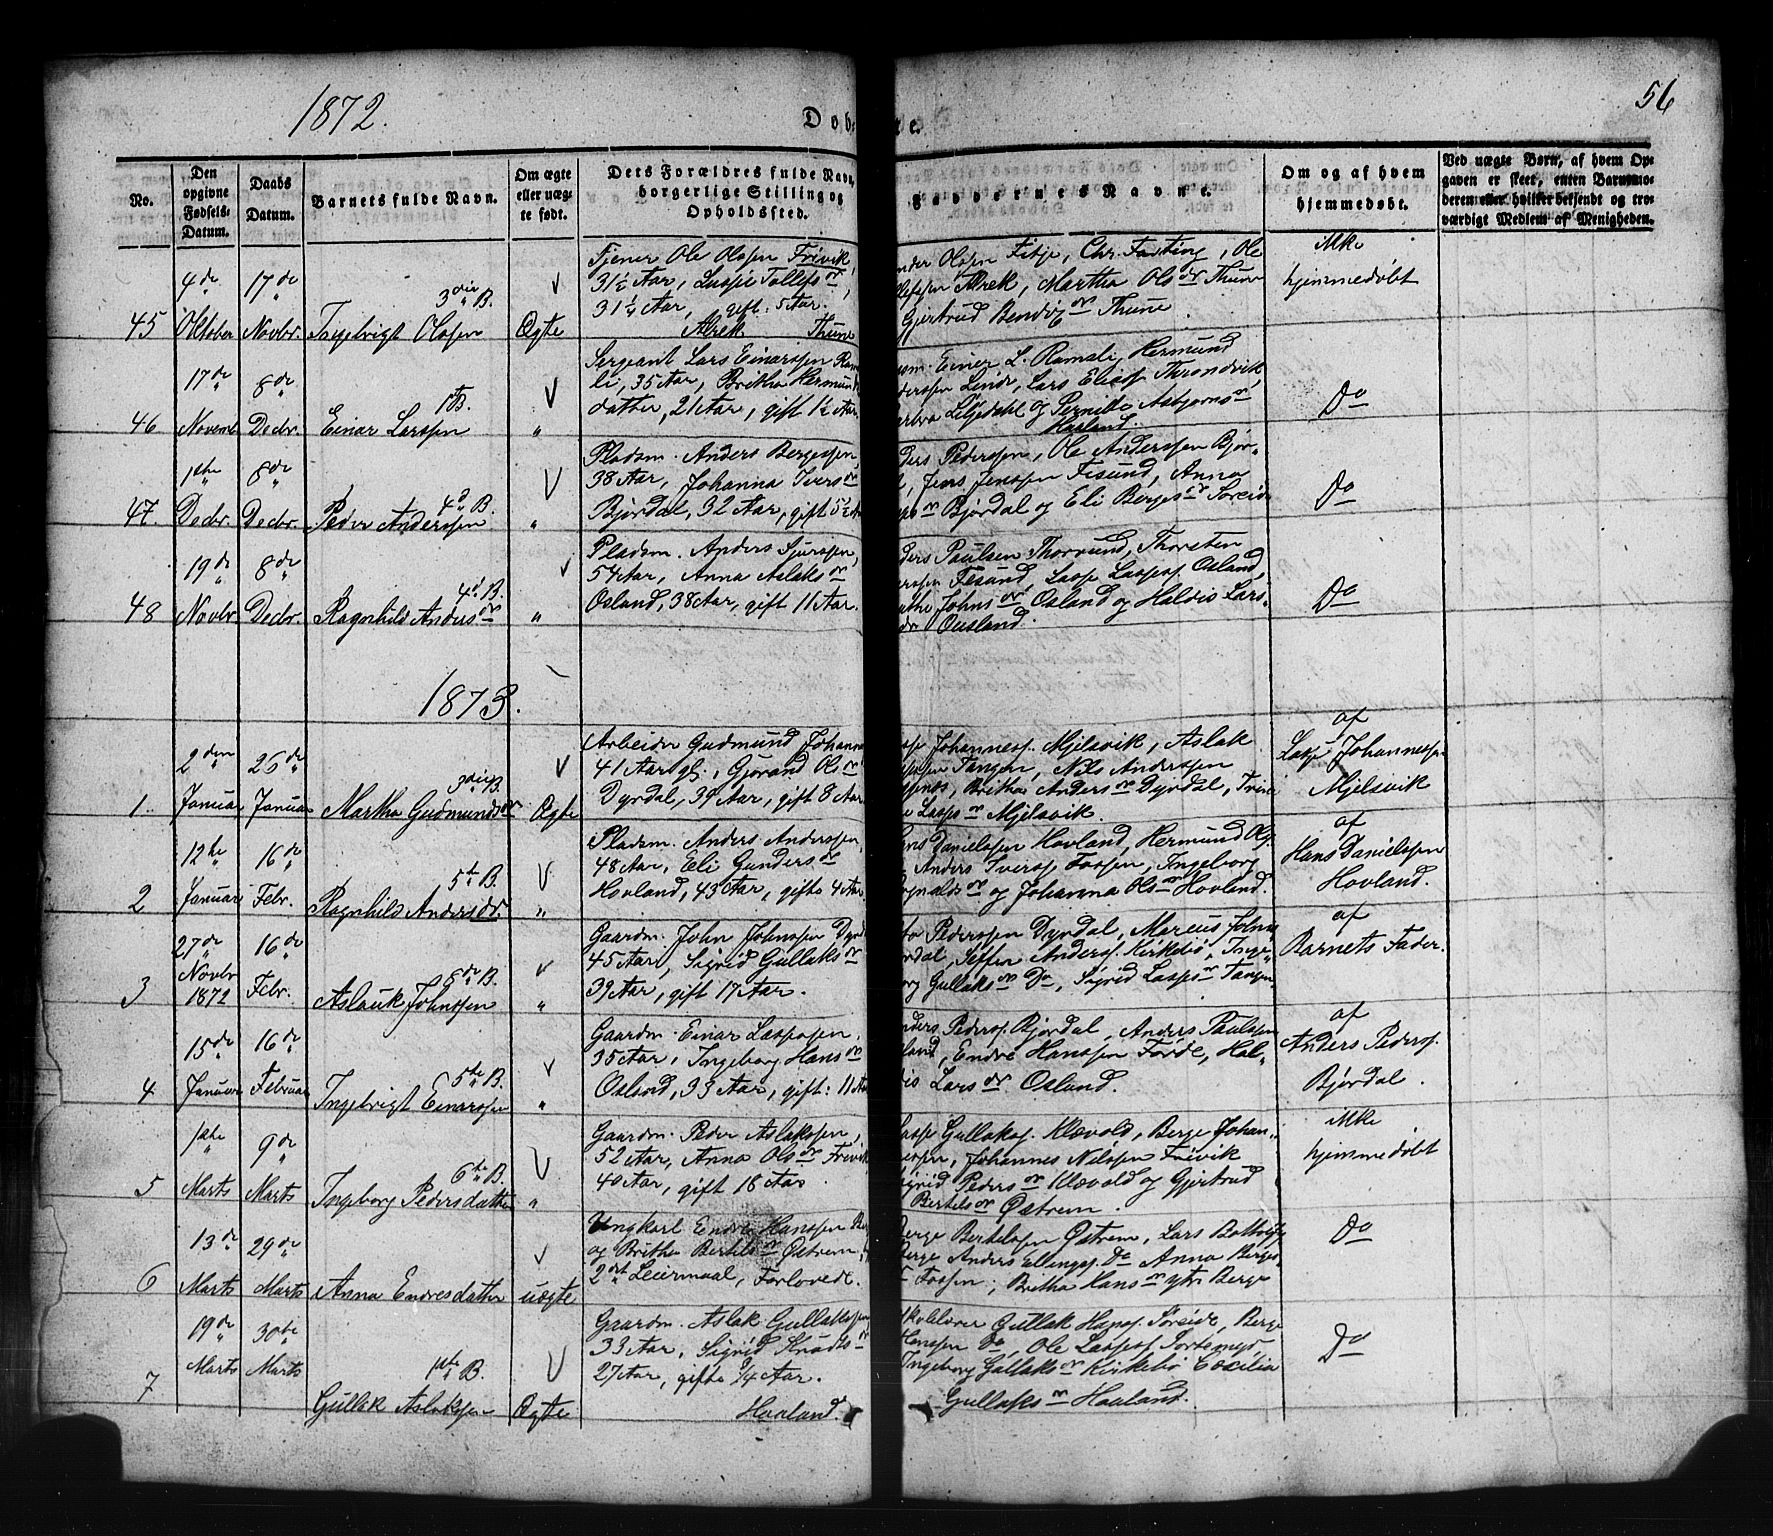 1872.
Døbte.
56
No.
Den opgivne Fødsels-Datum.
Daabs Datum.
Barnets fulde Navn.
Om ægte eller uægte født.
Dets Forældres fulde Navn, borgerlige Stilling og Opholdssted.
Faddernes Navne.
Om og af hvem hjemmedøbt.
Ved uægte Børn, af hvem Opgaven er skeet, enten Barnemoderen eller hvilket bekjendt og troværdigt Medlem af Menigheden.
45
4de Oktober
17de Novbr.
3die B.
Ingebrigt Olsen
Ægte
Tjener Ole Olssen Frivik,
31½ Aar, Tollefsdr,
31¼ Aar, gift: 5 Aar.
Alrek Thune
Olssen Chr. Fasting, Ole
Alrek, Martha Olsdr Thune
Gjertrud Thune
ikke
hjemmedøbt
46
17de Novemb
8de Decbr.
1ste B.
Einar Larssen
"
Sergeant Lars Einarssen Ram
li, 35 Aar, Britha Hermund
datter, 21 Aar, gift 1½ Aar
Einer L. Ramsli, Hermund
Linde, Lars Throndvik
Liljedahl og Pernille Asbjørnsdr
Havland.
Do
47.
1ste Decbr.
8de Decbr.
4de B.
Peder Anderssen
"
Pladsm. Anders Bergessen,
38 Aar, Johanna Iversdr
Bjørdal, 32 Aar, gift 5½ Aar
Pederssen, Ole Anderssen Bjør-
Jens Jenssen Fesund, Anna
Bjørdal og Eli Bergesdr Søreide
Do
48
19de Novbr
8de Decbr.
4de B.
Ragnhild Andersdr
"
Pladsm. Anders Sjurssen,
54 Aar, Anna Aslaksdr
Osland, 38 Aar, gift 11 Aar.
Paulsen Thorsund, Thorsten
Fesund, Lasse Lassess. Osland,
Johnsdr Osland og Haldis Lars-
dr Ousland.
Do
1873.
1.
2den Januar
26de Januar
3die B.
Martha Gudmundsdr
Ægte
Arbeider Gudmund Johanns
41 Aar gl., Gjørand Olsdr
Dyrdal, 39 Aar, gift 8 Aar
Johanness. Mjelsvik, Aslak
Tangen, Nils Anderssen
Britha Andersdr Dyrdal,
Lassesdr Mjelsvik.
af
Lasse Johannessen
Mjelsvik
2
12te Januari
16de Febr.
5te B.
Ragnhild Andersdr.
"
Pladsm. Anders Anderssen,
48 Aar, Eli Gundersdr
Hovland, 43 Aar, gifte 4 Aar
Danielssen Hovland, Hermund
Anders Iverss. Fossen, Ingeborg
og Johanna Olsdr Hovland.
af
Hans Danielssen
Hovland.
3
27de Novbr 1872
16de Febr.
5te B.
Aslauk Johnssen
"
Gaardm. John Johnssen Dyrd
45 Aar, Sigrid Gullaksdr
39 Aar, gift 17 Aar.
Pederssen Dyrdal, Mercus Johns
Steffen Anderss. Kirkebø, Inge-
borg Gullaksdr Do, Sigrid Lassesdr Tangen
af
Barnets Fader.
4
15de Januar
16de Februar
5te B.
Ingebrigt Einarssen
"
Gaardm. Einar Lassessen,
35 Aar, Ingeborg Hansdr
Osland, 33 Aar, gift: 11 Aar
Anders Pederss. Bjørdal, Anders Paulssen
Endre Hanssen Førde, Hal-
dis Larsdr Osland.
af
Anders Pederss.
Bjørdal.
5
1ste Marts
9de Marts
6te B.
Ingeborg Pedersdatter
"
Gaardm. Peder Aslakssen,
52 Aar, Anna Olsdr Frivik
40 Aar, gift 18 Aar
Lasse Gullakss. Klævold, Berge Johan-
nessen, Johannes Nilssen Frivik
Sigrid Pedersdr Klævold og Gjertrud
Bertelsdr Østrem.
ikke
hjemmedøbt
6
13de Marts
29de Marts
Anna Endresdatter
uægte
Ungkarl Endre Hanssen
og Britha Bertelsdr Østrem,
2det Leiermaal, Forlovede.
Berge Bertelssen Østrem, Lars
Berge Anders Ellingss. Do Anna Berges-
dr Fossen, Britha Hansdr Berge
Do
7
19de Marts
30te Marts
1ste B.
Gullak Aslakssen
Ægte
Gaardm. Aslak Gullakssen
33 Aar, Sigrid Knudsdr
27 Aar, gifte ¾ Aar.
Hovland.
Skolelærer Gullak Hanss. Søreide, Berge
Hanssen Do, Ole Lassess.
Ingeborg Gullaksdr Kirkebø Cæcilia
Gullaksdr Hovland.
Do